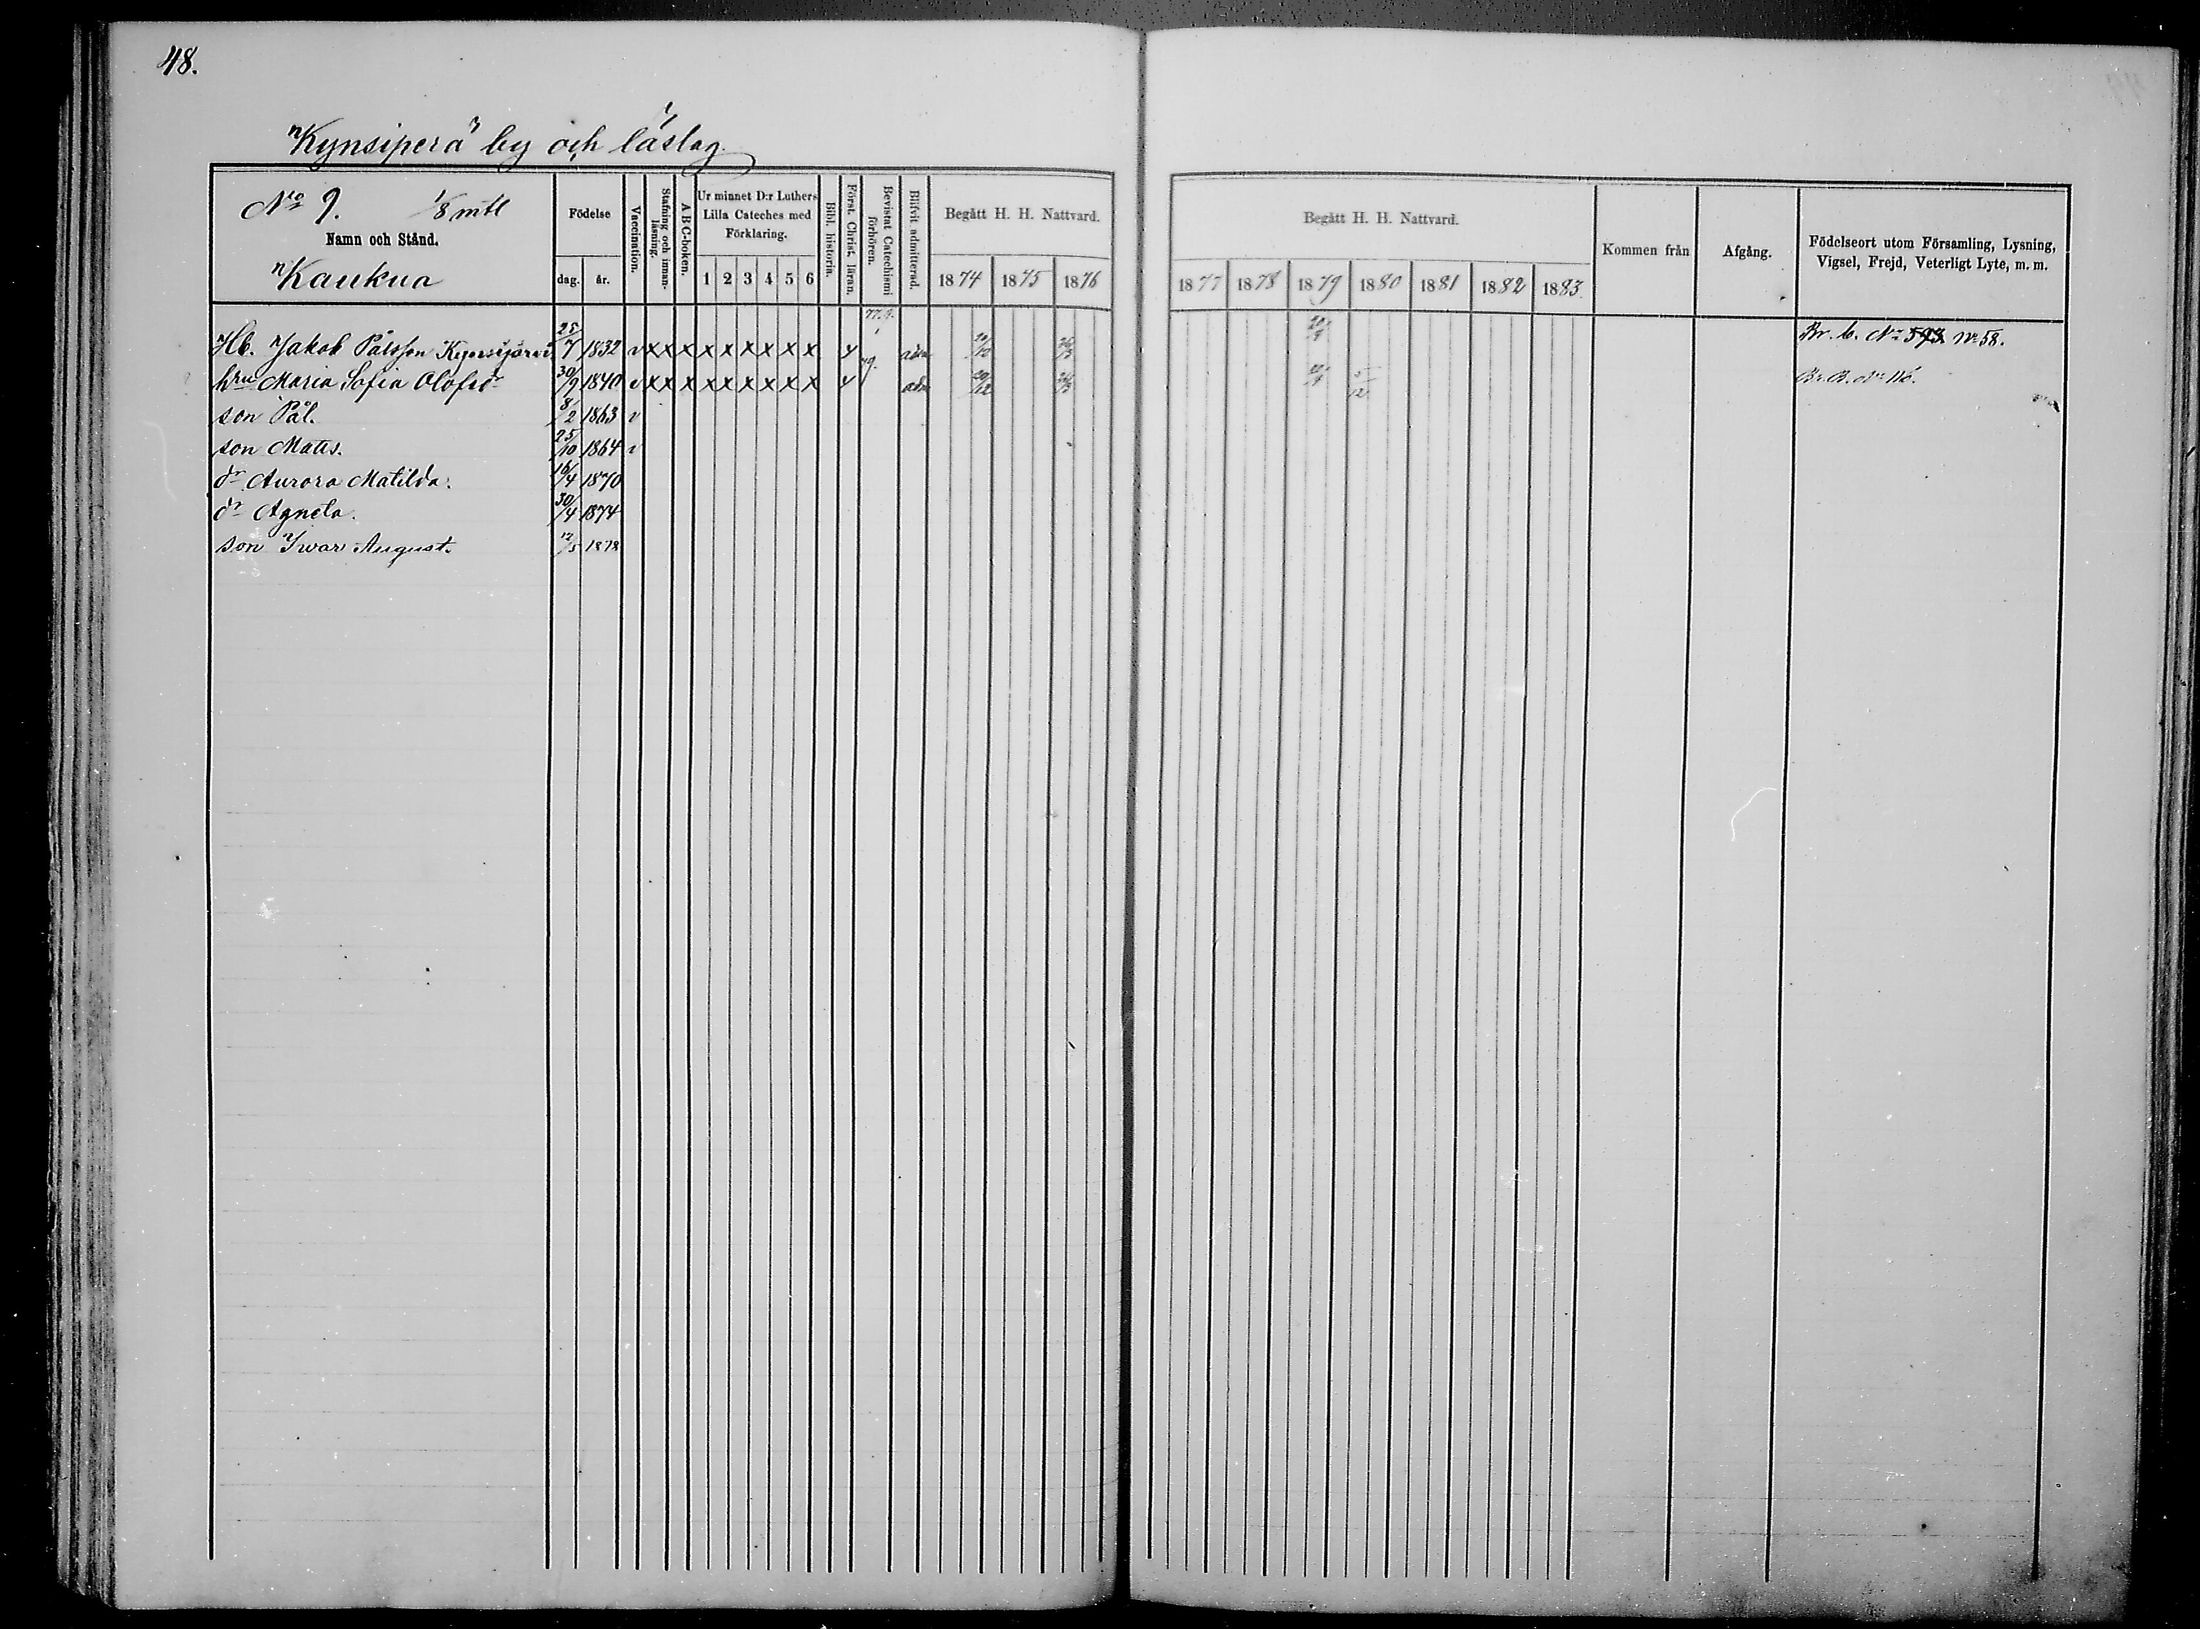 48.
"Kynsiperä" by och läslag.
No 9. 1/8 mtl
Namn och Stånd.
"Kaukua
Födelse
dag. år.
Vaccination.
Stafning och innanläsning.
A B C-boken.
Ur minnet D:r Luthers Lilla Cateches med Förklaring.
1 2 3 4 5 6
Bibl. historia.
Först. Christ. läran.
Bevistat Catechismi förhören.
Blifvit admitterad.
Begått H. H. Nattvard.
1874 1875 1876
Begått H. H. Nattvard.
1877 1878 1879 1880 1881 1882 1883
Kommen från
Afgång.
Födelseort utom Församling, Lysning, Vigsel, Frejd, Veterligt Lyte, m. m.
Hb. Jakob Pålsson Kynsijärvi 25/7 1832 v x x x x x x x x x 4 adm 20/10 26/3 Br. b. No 593 No 58.
hru Maria Sofia Olofsdr 30/9 1840 v x x x x x x x x x 4 79. adm 29/12 26/3 Br. B. No 116.
son Pål. 8/2 1863 v
son Matts. 25/10 1864 v
dr Aurora Matilda. 16/4 1870
dr Agneta. 30/4 1874
son Iwar August. 12/5 1878